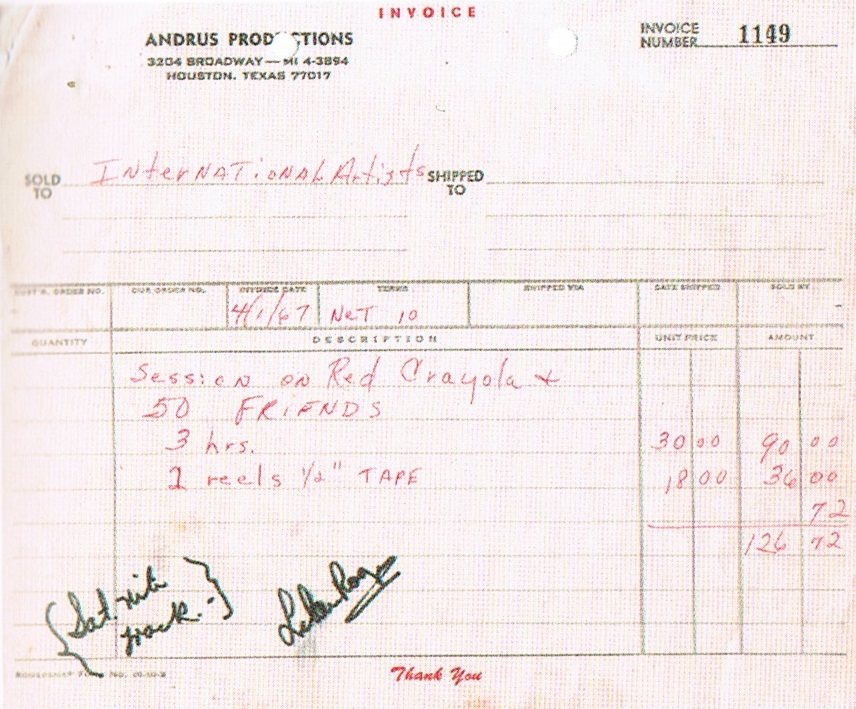 INVOICE
ANDRUS PRODUCTIONS
3204 BROADWAY — MI 4-3894
HOUSTON, TEXAS 77017
INVOICE NUMBER 1149
SOLD TO InterNATiONAL Artists
SHIPPED TO
CUST'S. ORDER NO. OUR ORDER NO. INVOICE DATE TERMS SHIPPED VIA DATE SHIPPED SOLD BY
4/1/67 NeT 10
QUANTITY DESCRIPTION UNIT PRICE AMOUNT
Session on Red Crayola +
50 FRiENDS
3 hrs. 30 00 90 00
2 reels 1/2" TAPE 18 00 36 00
72
126 72
{Sat. nite
track.}
Thank You